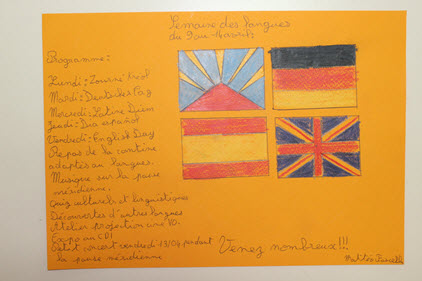 Semaine des langues
du 9 au 14 avril
Programme:
Lundi: Zourné Kréol
Mardi: Deutscher Tag
Mercredi: Latine Diem
Jeudi: Dia español
Vendredi: English Day
Repas de la cantine
adaptés au langues.
Musique sur la pause
méridienne.
Quiz culturels et linguistiques
Découvertes d'autres langues
Atelier projection une VO.
Expo au CDI
Petit concert vendredi 13/04 pendant
la pause méridienne
Venez nombreux!!!